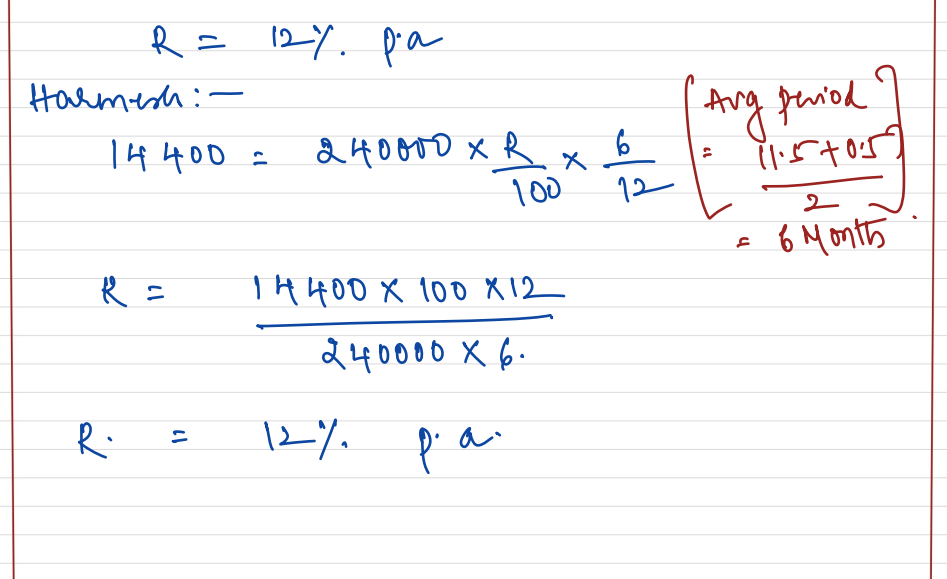 R = 12%. p.a
Harmesh :-
14400 = 240000 × R/100 × 6/12
[Avg period
= 11.5+0.5/2]
= 6 Months.
R = 14400 × 100 × 12
240000 × 6.
R. = 12%. p.a.